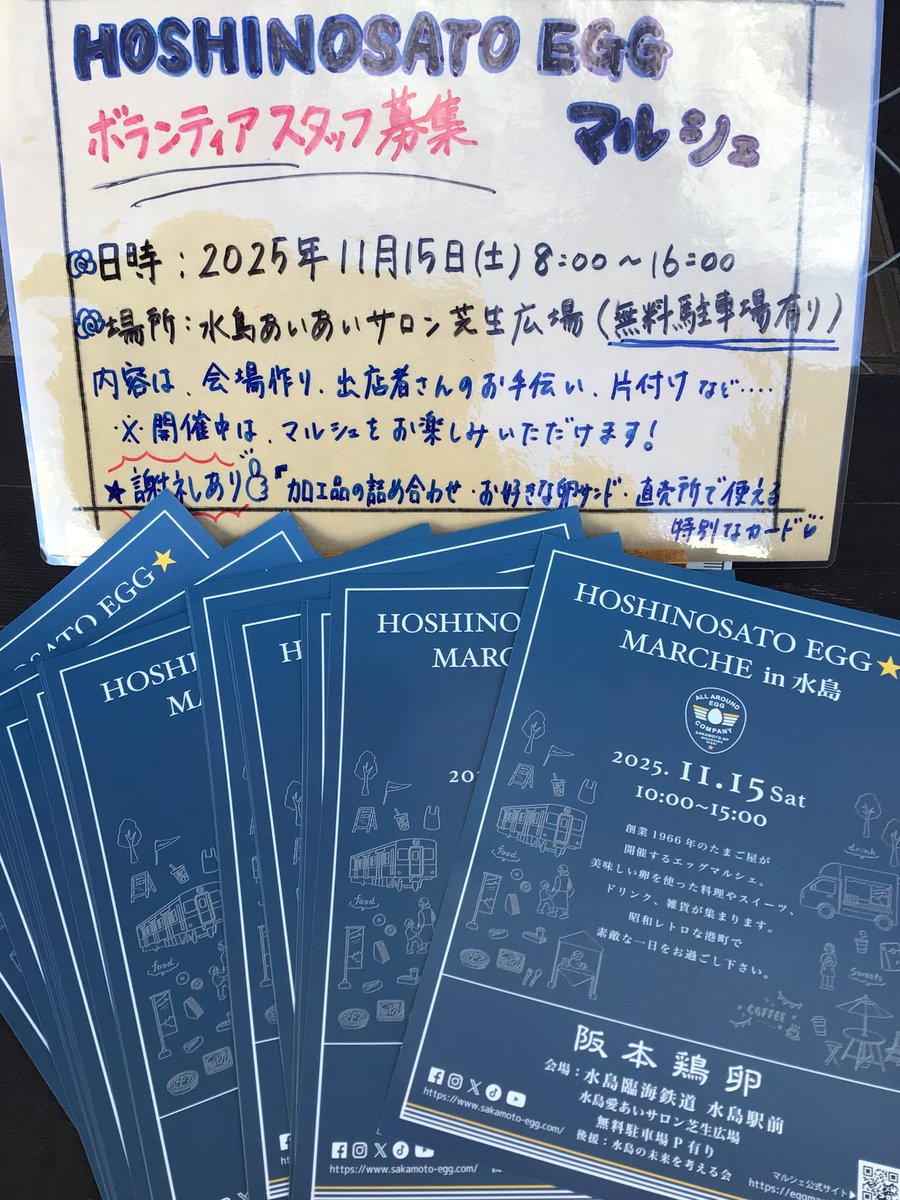 HOSHINOSATO EGG
ボランティアスタッフ募集 マルシェ
日時:2025年11月15日(土)8:00～16:00
場所:水島あいあいサロン芝生広場(無料駐車場有り)
内容は、会場作り、出店者さんのお手伝い、片付けなど‥‥
※開催中は、マルシェをお楽しみいただけます!
★謝礼あり 『加工品の詰め合わせ・お好きな卵サンド・直売所で使える
特別なカード
HOSHINOSATO EGG
MARCHE in 水島
ALL AROUND
EGG
COMPANY
2025. 11.15 Sat
10:00~15:00
創業1966年のたまご屋が
開催するエッグマルシェ。
美味しい卵を使った料理やスイーツ、
ドリンク、雑貨が集まります。
昭和レトロな港町で
素敵な一日をお過ごし下さい。
food
drink
Sweets
COFFEE
阪本鶏卵
会場:水島臨海鉄道 水島駅前
水島愛あいサロン芝生広場
無料駐車場P有り
後援:水島の未来を考える会
https://www.sakamoto-egg.com/
マルシェ公式サイト▶
SATO EGG
HOSHIN
MA
food
H
HOSHINO
MARC
202
food
https://www.sakamoto-egg.com/